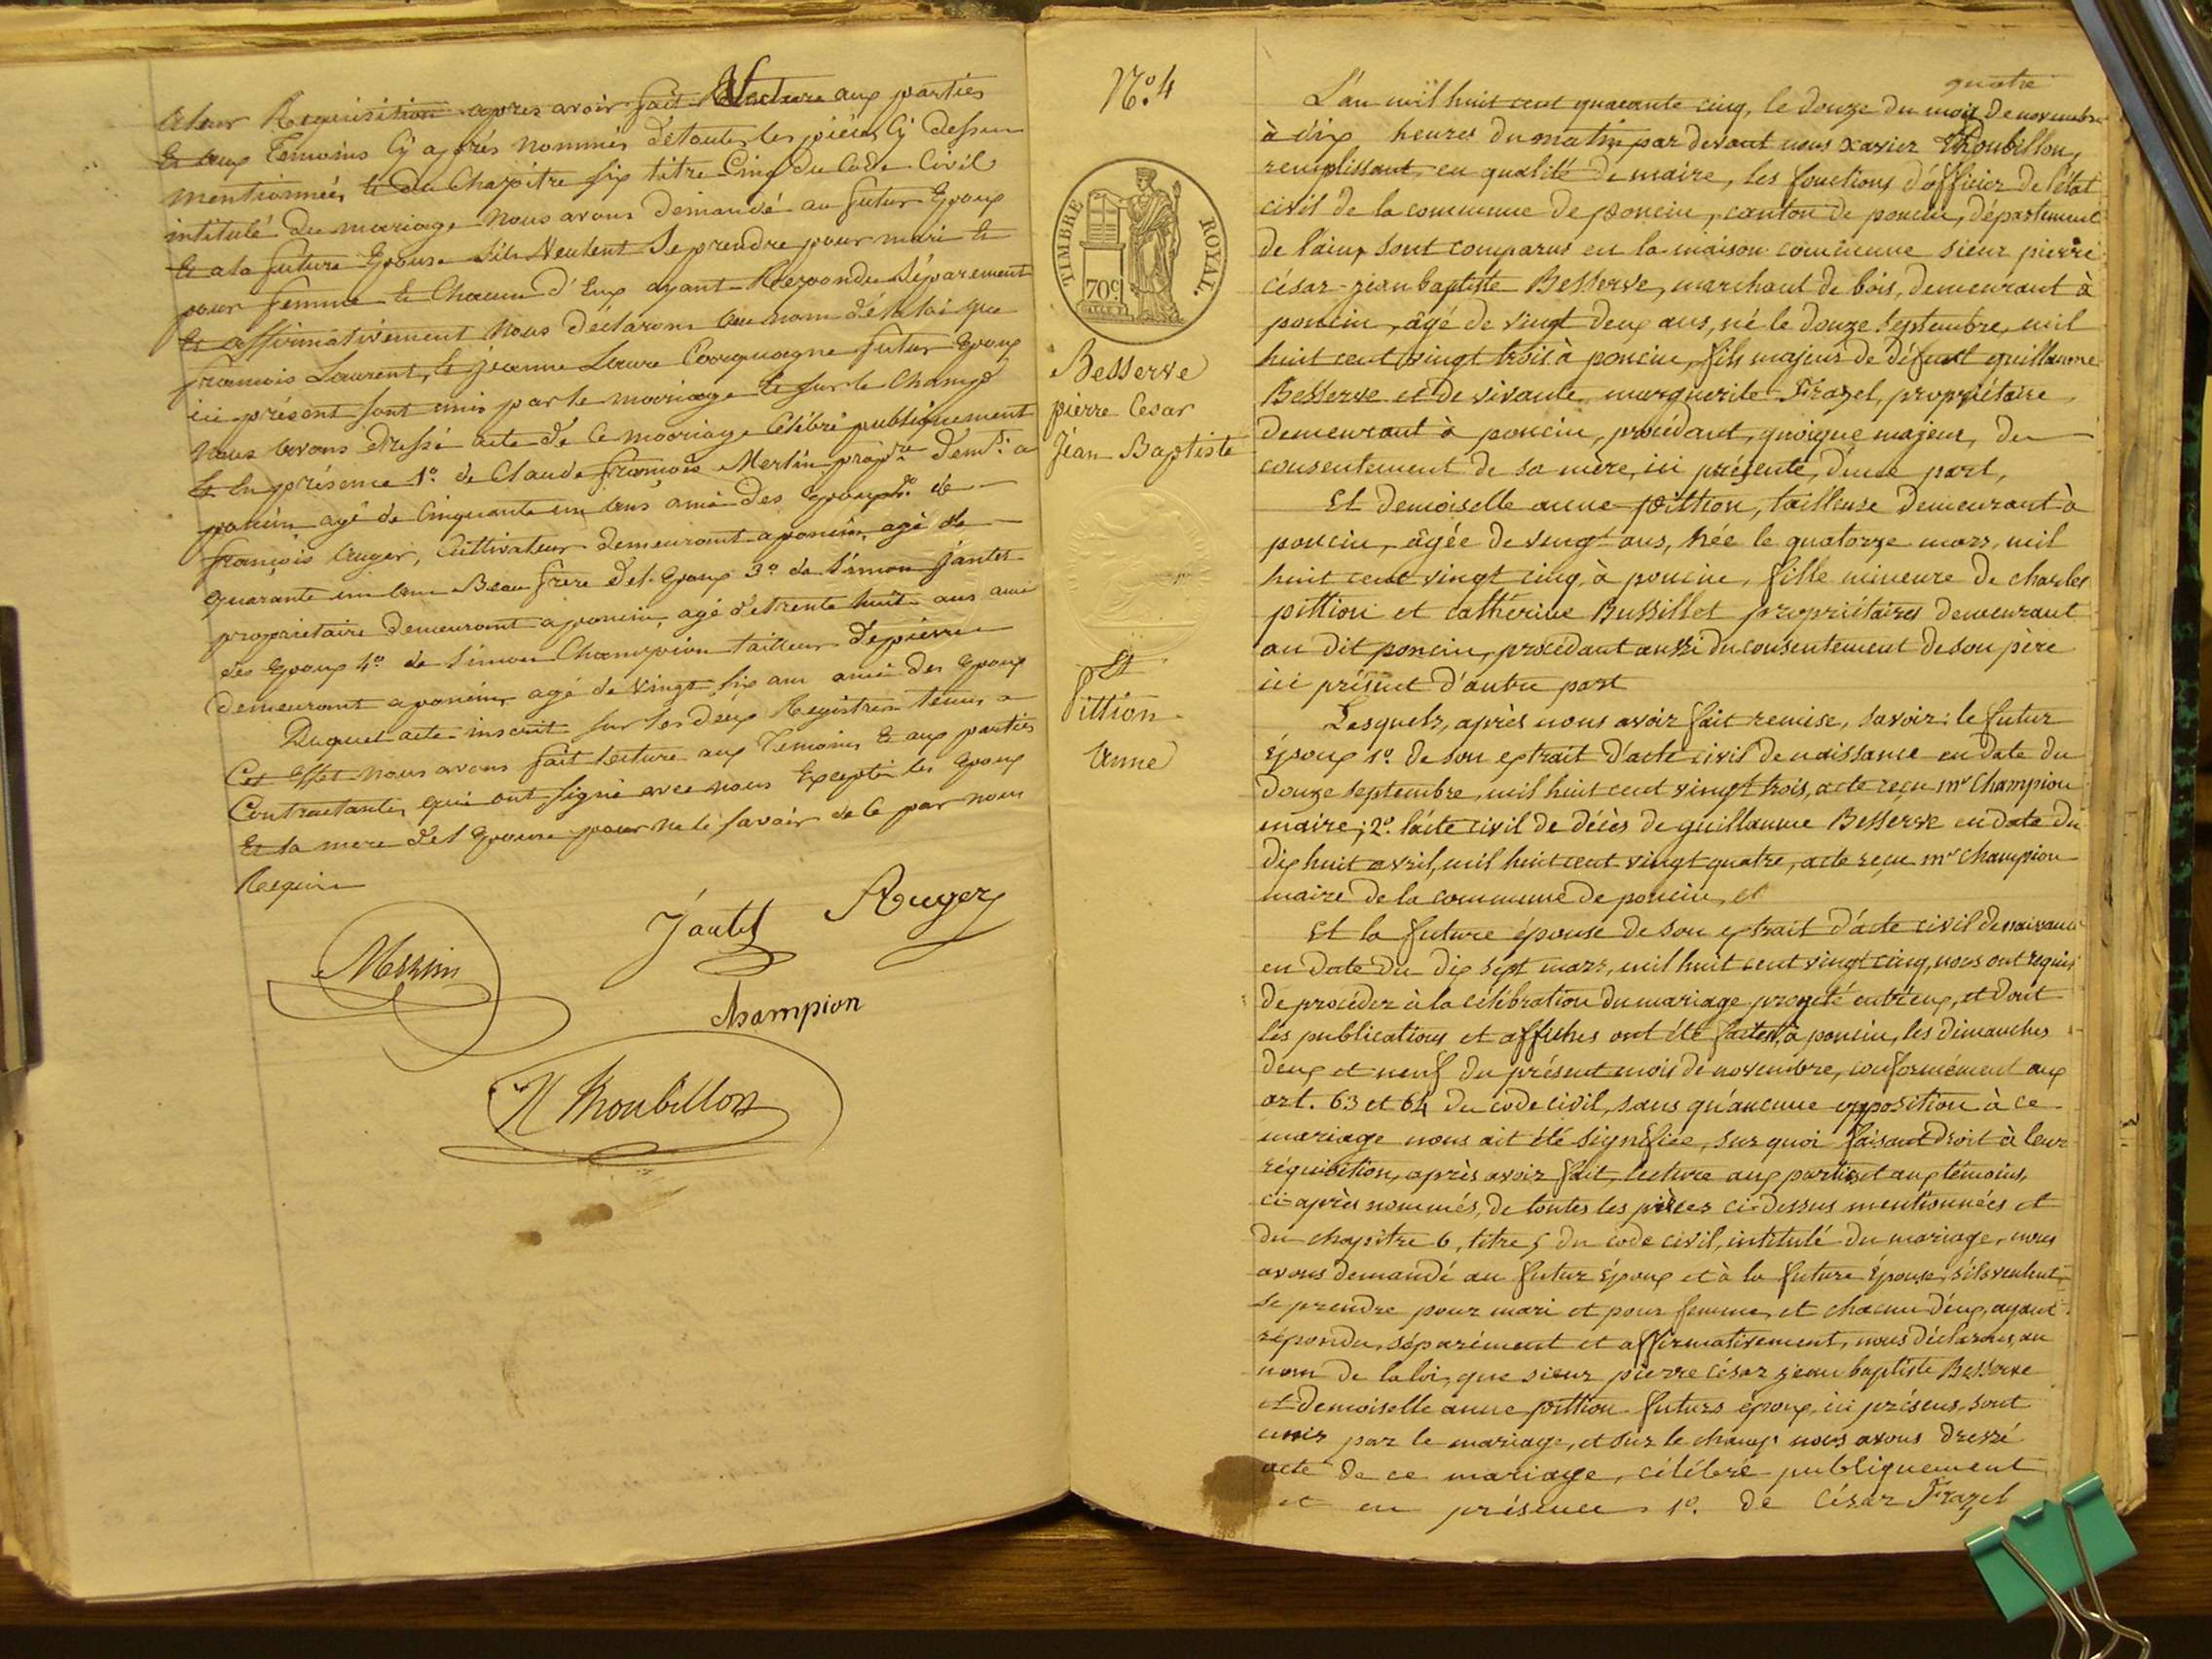 A leur Requisition apres avoir fait Lecture aux parties
Et aux Temoins Cy aprés Nommés de toutes les pièces Cy dessus
mentionnées Et du Chapitre six titre Cinq du Code Civil
intitulé du mariage Nous avons demandé au futur Epoux
Et a la future Epouse s'ils Veulent se prendre pour mari Et
pour femme Et Chacun d'Eux ayant Repondu Séparement
Et affirmativement Nous Déclarons au nom de la loi que
françois Laurent, Et jeanne Laure Courquagne futur Epoux
ici présent sont unis par le mariage Et sur le Champ
Nous avons Dressé acte de Ce mariage Célébré publiquement
Et En présence 1º. de Claude françois Merlin propre demt. a
poncin agé de Cinquante un ans ami des Epoux 2º. de
françois Auger, Cultivateur demeurant a poncin, agé de
quarante un ans Beau frere de l'Epoux 3º de Simon jantet
proprietaire Demeurant a poncin, agé de trente huit ans ami
des Epoux 4º de Simon Champion tailleur de pierre
Demeurant a poncin, agé de vingt six ans ami des Epoux
Duquel acte inscrit sur les deux Registres tenus a
Cet Effet Nous avons fait lecture aux Temoins Et aux parties
Contractantes, qui ont signé avec nous Excepté les Epoux
Et la mere de l'Epouse pour ne le savoir de Ce par nous
Requis
Jantet Auger
Champion
X Thoubillon
Nº. 4
TIMBRE ROYAL.
70c.
Besserve
pierre Cesar
Jéan Baptiste
Et
Pittion
Anne
quatre
L'an mil huit cent quarante cinq, le douze du mois de novembre
à dix heures du matin par devant nous xavier Thoubillon,
remplissant, en qualité de maire, les fonctions d'officier de l'état
civil de la commune de poncin, canton de poncin, département
de l'ain, sont comparus en la maison commune sieur pierre
césar jean baptiste Besserve, marchand de bois, demeurant à
poncin, âgé de vingt deux ans, né le douze septembre, mil
huit cent vingt trois à poncin, fils majeur de défunt guillaume
Besserve et de vivante marguerite Frazel, propriétaire,
demeurant à poncin, procédant, quoique majeur, du
consentement de sa mère, ici présente, d'une part,
Et demoiselle anne pittion, tailleuse demeurant à
poncin, âgée de vingt ans, née le quatorze mars, mil
huit cent vingt cinq, à poncin, fille mineure de charles
pittion et cathérine Bussillet propriétaires demeurant
au dit poncin, procédant aussi du consentement de son père
ici présent d'autre part
Lesquels, après nous avoir fait remise, savoir: le futur
époux 1º. de son extrait d'acte civil de naissance en date du
douze septembre, mil huit cent vingt trois, acte reçu mr Champion
maire; 2º. l'acte civil de décès de guillaume Besserve en date du
dix huit avril, mil huit cent vingt quatre, acte reçu mr champion
maire de la commune de poncin, et
Et la future épouse de son extrait d'acte civil de naissance
en date du dix sept mars, mil huit cent vingt cinq, nous ont requis
de procéder à la célébration du mariage projeté entr'eux, et dont
les publications et affiches ont été faites à poncin, les dimanches
deux et neuf du présent mois de novembre, conformément aux
art. 63 et 64 du code civil, sans qu'aucune opposition à ce
mariage nous ait été signifiée, sur quoi faisant droit à leur
réquisition, après avoir fait, lecture aux parties et aux témoins,
ci-après nommés, de toutes les pièces ci-dessus mentionnées et
du chapitre 6, titre 5 du code civil, intitulé du mariage, nous
avons demandé au futur époux et à la future épouse, s'ils veulent
se prendre pour mari et pour femme, et chacun d'eux, ayant
répondu, séparément et affirmativement, nous déclarons, au
nom de la loi, que sieur pierre césar jean baptiste Besserve
et demoiselle anne pittion futurs époux, ici présens, sont
unis par le mariage, et sur le champ nous avons dressé
acte de ce mariage, célébré publiquement
et en présence 1º. de César Frazel